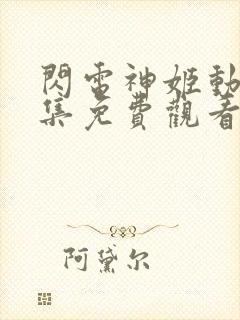 閃雷神姬動
集免費觀看
阿黛尔